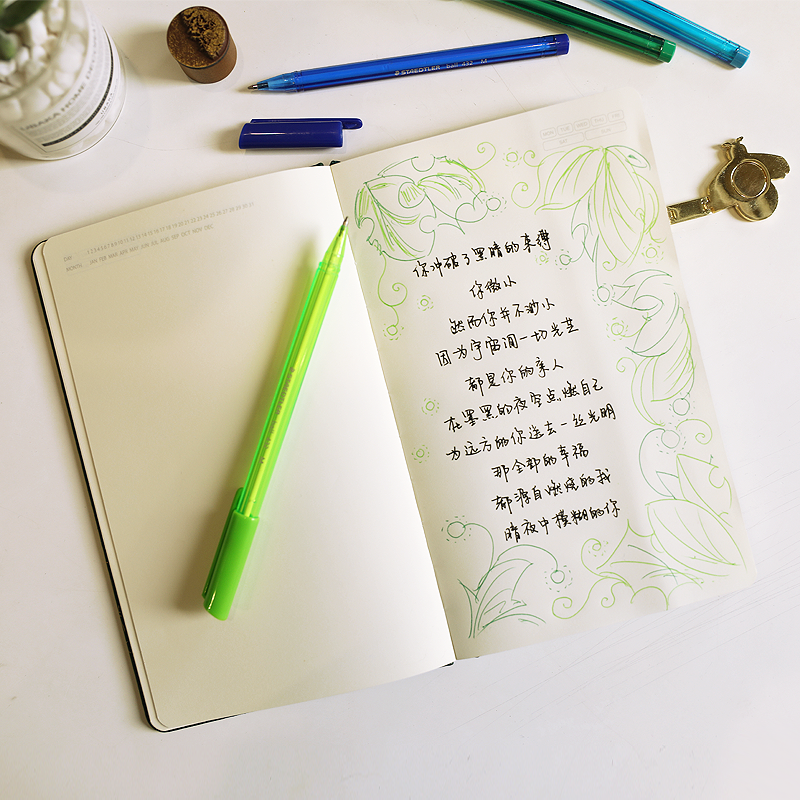 URBAKA HOME
STAEDTLER ball 432 M
你冲破了黑暗的束缚
你微小
然而你并不渺小
因为宇宙间一切光芒
都是你的亲人
在墨黑的夜空点燃自己
为远方的你送去一丝光明
那全部的幸福
都源自燃烧的我
暗夜中模糊的你